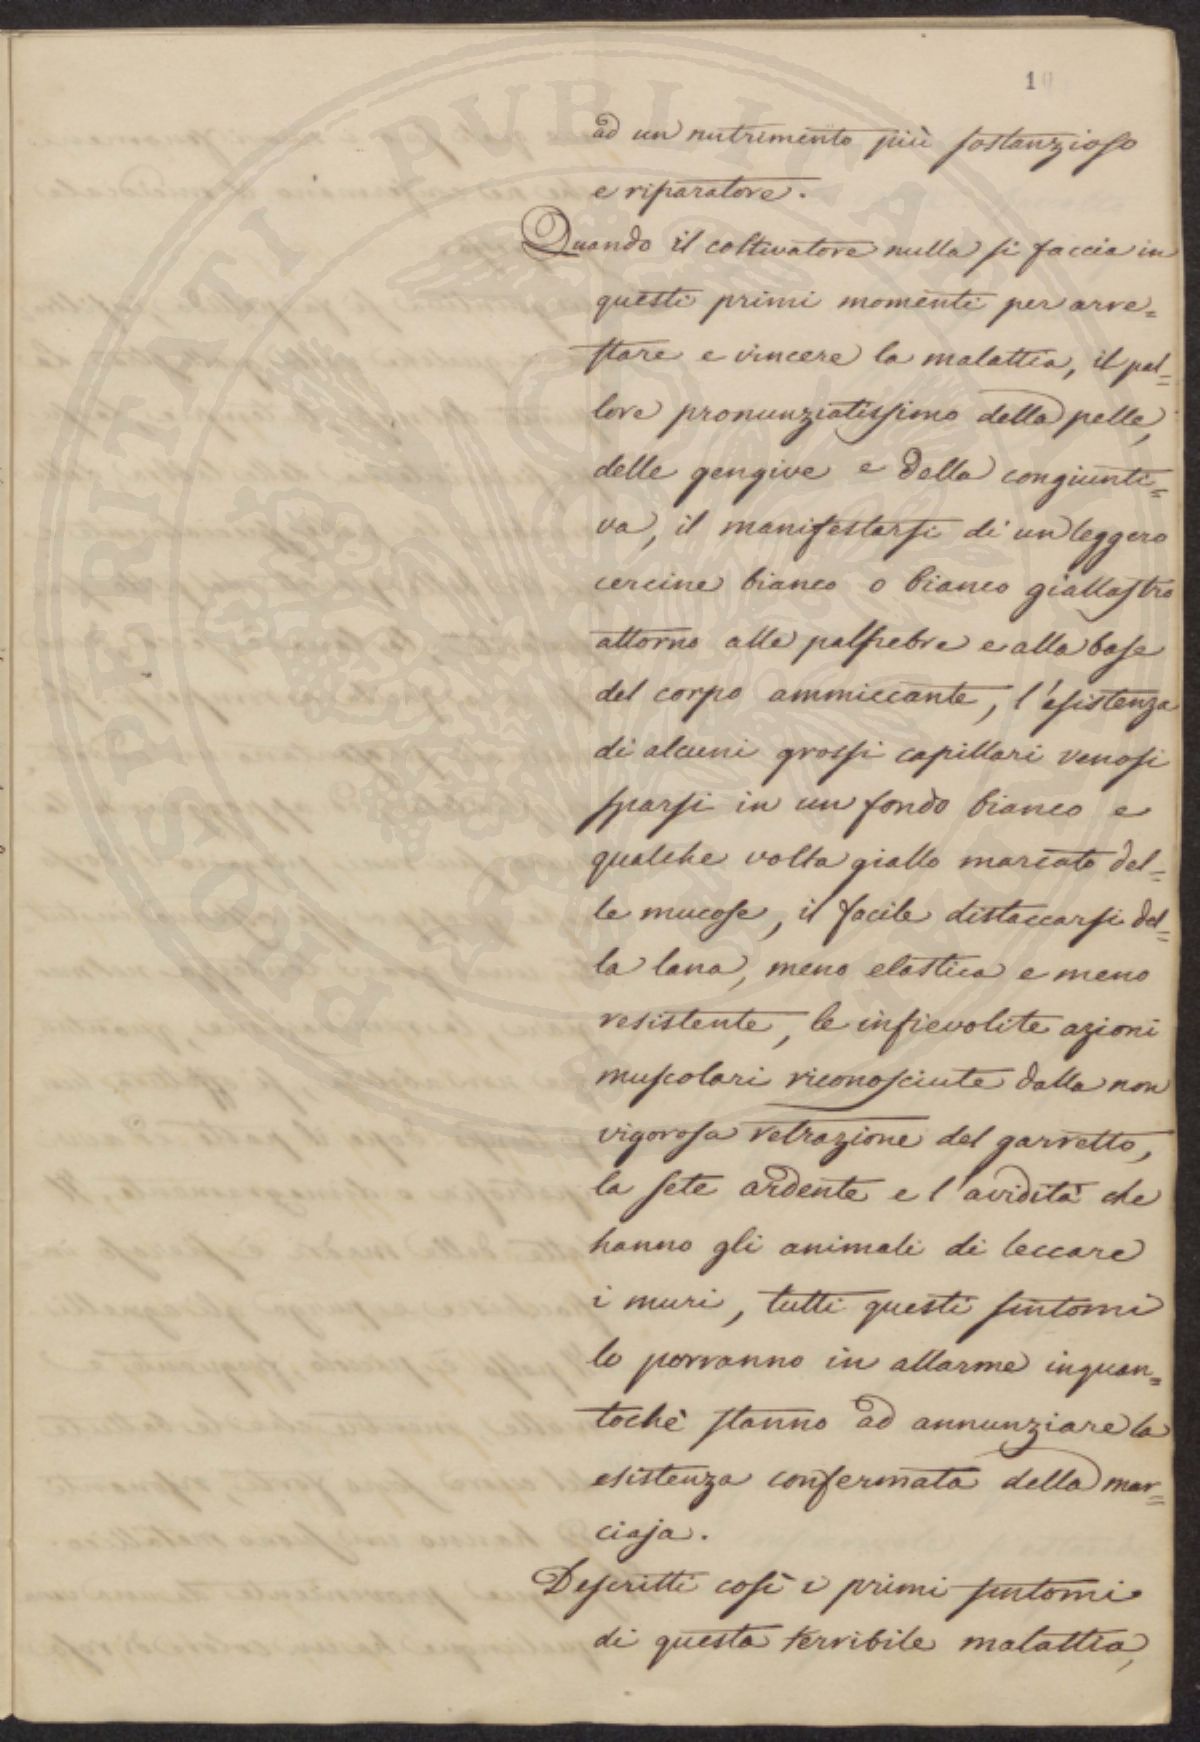 10
ad un nutrimento più sostanzioso
e riparatore.
Quando il coltivatore nulla si faccia in
questi primi momenti per arre=
stare e vincere la malattia, il pal=
lore pronunziatissimo della pelle,
delle gengive e della congiunti=
va, il manifestarsi di un leggero
cercine bianco o bianco giallastro
attorno alle palpebre e alla base
del corpo ammiccante, l'esistenza
di alcuni grossi capillari venosi
sparsi in un fondo bianco e
qualche volta giallo marcato del=
le mucose, il facile distaccarsi del=
la lana, meno elastica e meno
resistente, le infievolite azioni
muscolari riconosciute dalla non
vigorosa retrazione del garretto,
la sete ardente e l'avidità che
hanno gli animali di leccare
i muri, tutti questi sintomi
lo porranno in allarme inquan=
tochè stanno ad annunziare la
esistenza confermata della mar=
ciaja.
Descritti così i primi sintomi
di questa terribile malattia,
PROSPERITATI PUBLICAE